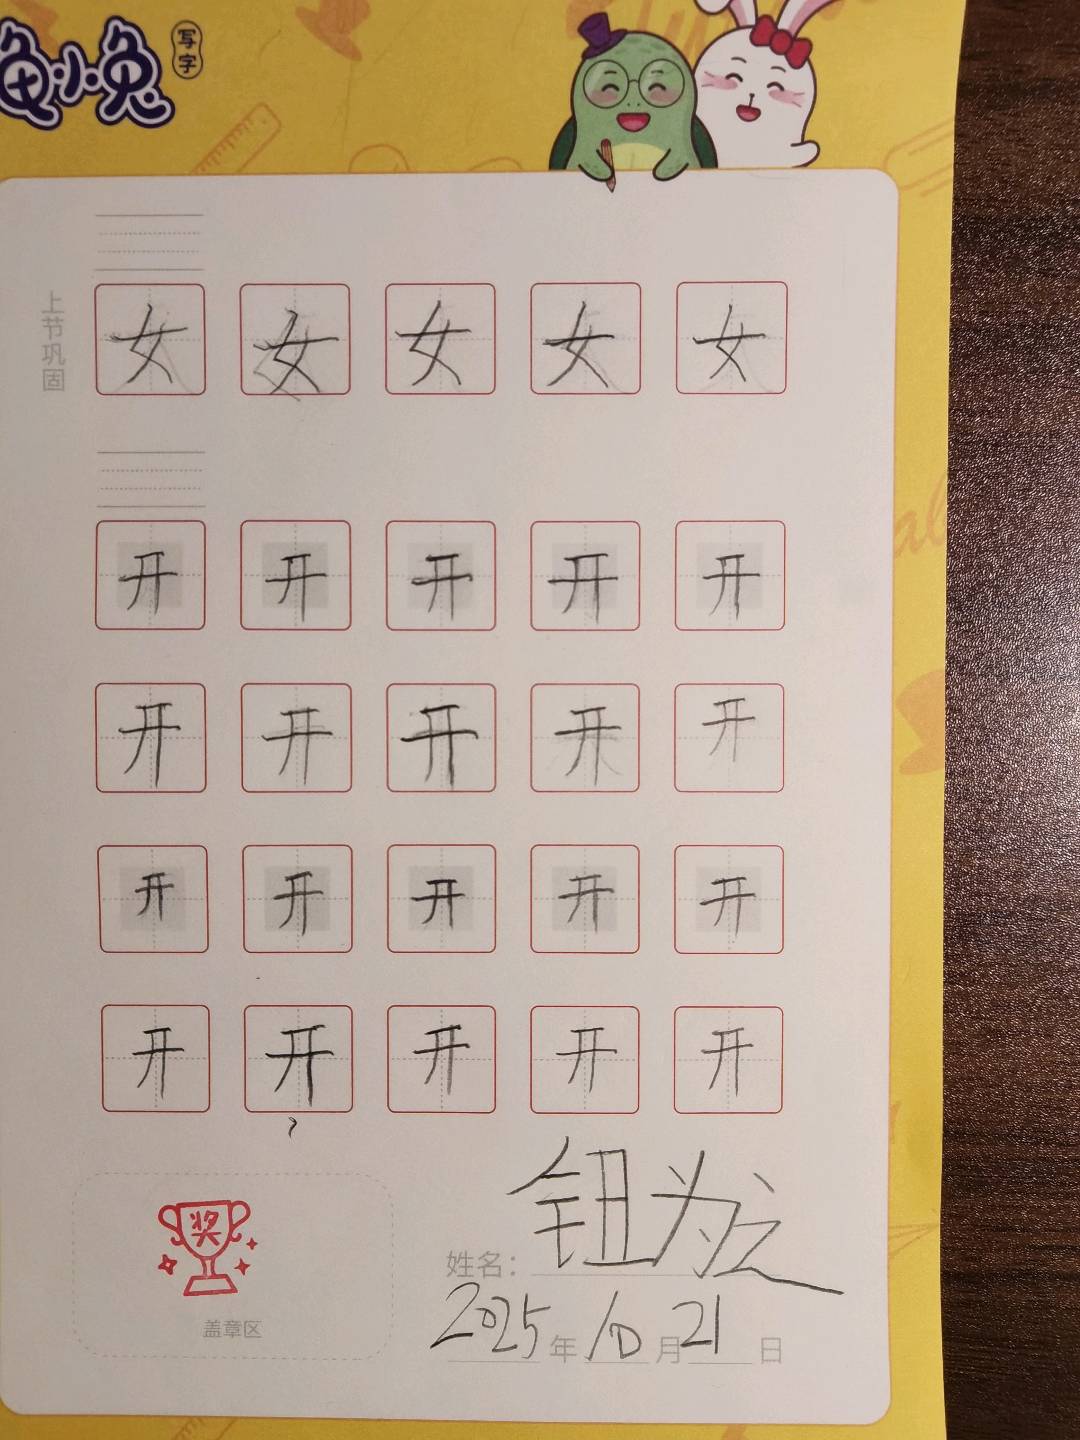 龟小兔
写字
上节巩固
女 女 女 女 女
开 开 开 开 开
开 开 开 开 开
开 开 开 开 开
开 开 开 开 开
奖
盖章区
姓名：钮为之
2025年10月21日